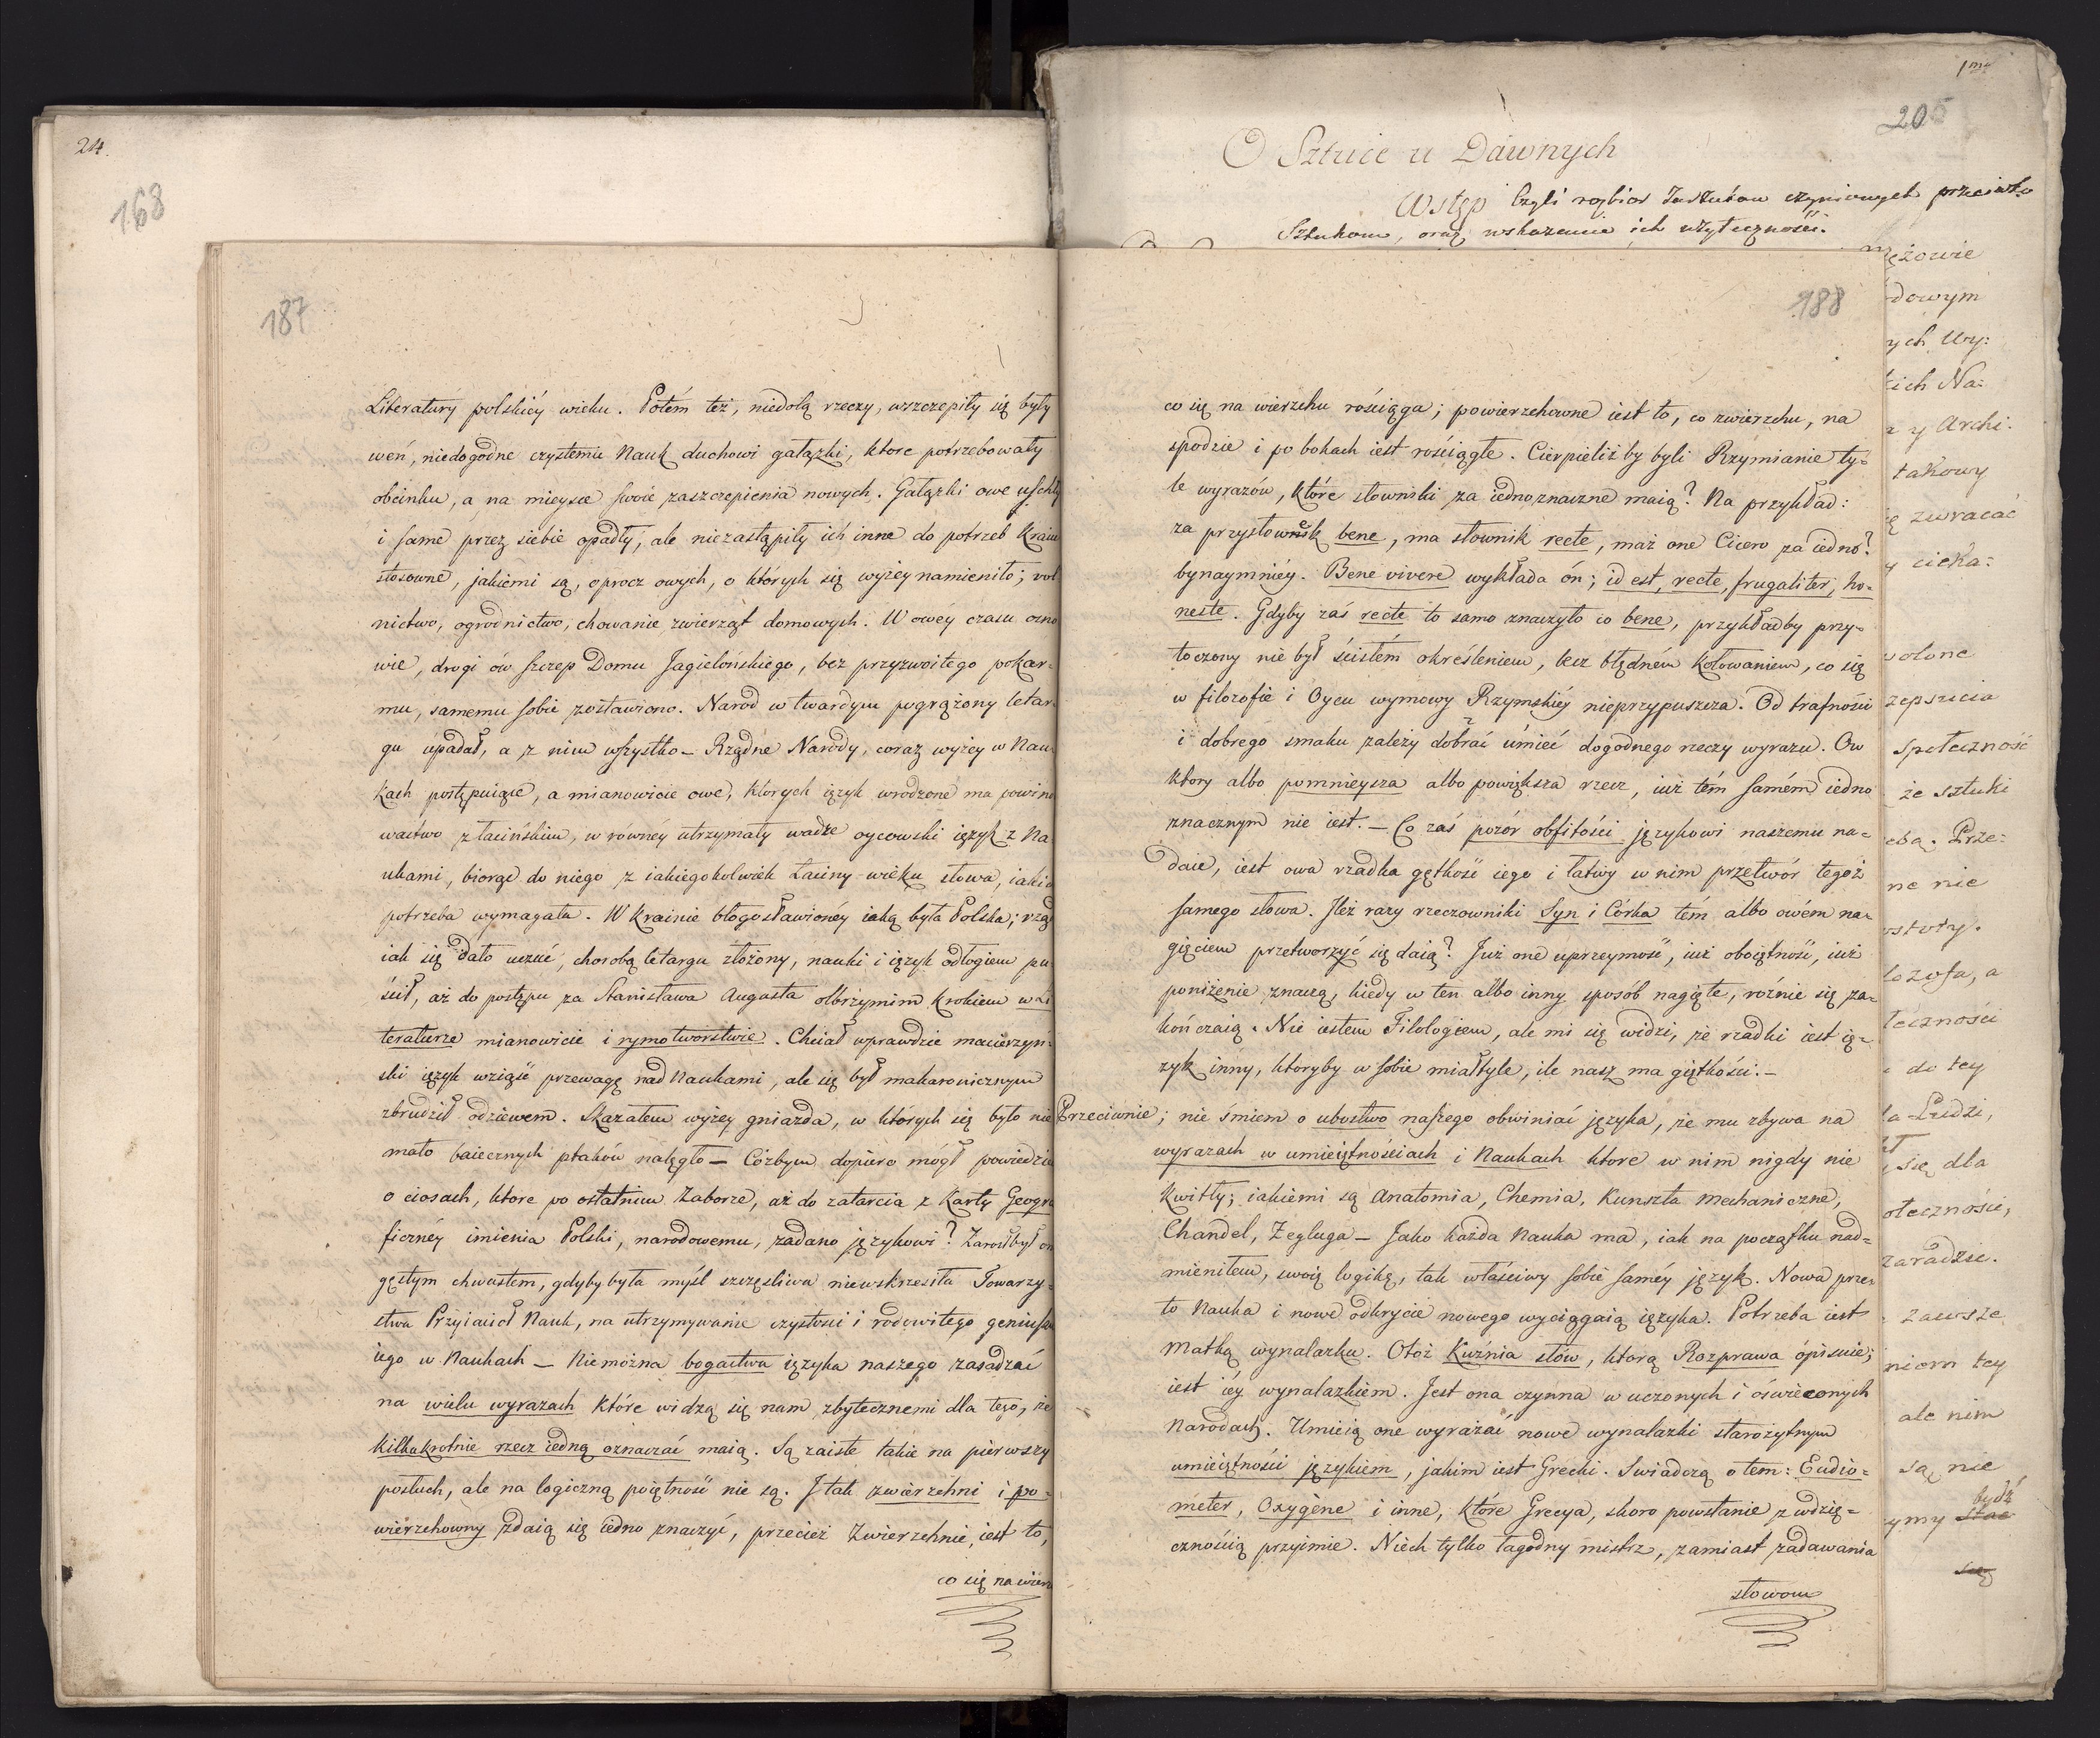 24.
168
187
Literatury polskiéy wieku. Potém też, niedolą rzeczy, wszczepiły się były
weń, niedogodne czystemu Nauk duchowi gałązki, ktore potrzebowały
obcinku, a na mieysce swoie zaszczepienia nowych. Gałązki owe uschły
i same przez siebie opadły, ale niezastąpiły ich inne do potrzeb Kraiu
stosowne, jakiemi są, oprocz owych, o których się wyżey namieniło; rol
nictwo, ogrodnictwo, chowanie zwierząt domowych. W owéy czasu osno
wie, drogi ów szczep Domu Jagielońskiego, bez przyzwoitego pokar-
mu, samemu sobie zostawiono. Narod w twardym pogrążony letar
gu upadał, a z nim wszystko — Rządne Narody, coraz wyżey w Nau
kach postępuiące, a mianowicie owe, ktorych ięzyk wrodzone ma powino
wactwo z łacińskim, w równéy utrzymały wadze oycowski ięzyk z Na
ukami, biorąc do niego z iakiegokolwiek Łaciny wieku słowa, iakic
potrzeba wymagała. W krainie błogosławionéy iaką była Polska; rząd
iak się dało uczuć, chorobą letargu złożony, nauki i ięzyk odłogiem pu
ścił, aż do postępu za Stanisława Augusta olbrzymim krokiem w Li
teraturze mianowicie i rymotworstwie. Chciał wprawdzie macierzyń-
ski ięzyk wziąść przewagę nad Naukami, ale się był makaronicznym
zbrudził odziewem. Skazałem wyżey gniazda, w ktorych się było nie
mało baiecznych ptaków nalęgło — Cóżbym dopiero mógł powiedzieć
o ciosach, ktore po ostatnim Zaborze, aż do zatarcia z Karty Geogra
ficznéy imienia Polski, narodowemu, zadano językowi? Zarosłbył on
gęstym chwastem, gdyby była myśl szczęsliwa niewskrzesiła Towarzy-
stwa Przyiaciół Nauk, na utrzymywanie czystosci i rodowitego geniuszu
iego w Naukach — Niemożna bogactwa ięzyka naszego zasadzać
na wielu wyrazach które widzą się nam zbytecznemi dla tego, że
kilkakrotnie rzecz iedną oznaczać maią. Są zaiste takie na pierwszy
posłuch, ale na logiczną poiętność nie są. I tak zwierzchni i po-
wierzchowny zdaią się iedno znaczyć, przecież Zwierzchnie, iest to,
co się na wierz
1mo
205
O Sztuce u Dawnych
Wstęp Czyli rozbior Zarzutow czynionych przeciwko
Sztukom, oraz wskazanie ich użyteczności.
188
co się na wierzchu rościąga; powierzchowne iest to, co zwierzchu, na
spodzie i po bokach iest rościągłe. Cierpieliż by byli Rzymianie ty-
le wyrazów, które słowniki za iednoznaczne maią? Na przykład:
za przysłowek bene, ma słownik recte, maż one Cicero za iedno?
bynaymniéy. Bene vivere wykłada ón; id est, recte, frugaliter, ho-
neste. Gdyby zaś recte to samo znaczyło co bene, przykładby przy-
toczony nie był ścisłém określeniem, lecz błędném kołowaniem, co się
w filozofie i Oycu wymowy Rzymskiéy nieprzypuszcza. Od trafności
i dobrego smaku zależy dobrać umieć dogodnego rzeczy wyrazu. Ow
ktory albo pomnieysza albo powiększa rzecz, iuż tém samém iedno
znacznym nie iest. — Co zaś pozór obfitości językowi naszemu na-
daie, iest owa rzadka gętkość iego i łatwy w nim przetwór tegoż
samego słowa. Ileż razy rzeczowniki Syn i Córka tém albo owém na-
gięciem przetworzyć się daią? Już one uprzeymość, iuż oboiętność, iuż
poniżenie znaczą, kiedy w ten albo inny sposób nagięte, rożnie się za-
kończaią. Nie iestem Filologiem, ale mi się widzi, że rzadki iest ię-
zyk inny, ktoryby w sobie miał tyle, ile nasz ma giętkości. —
Przeciwnie; nie śmiem o ubostwo naszego obwiniać języka, że mu zbywa na
wyrazach w umieiętnościach i Naukach ktore w nim nigdy nie
kwitły; iakiemi są Anatomia, Chemia, Kunszta Mechaniczne,
Chandel, Zegluga — Jako każda Nauka ma, iak na początku nad-
mieniłem, swoię logikę, tak właściwy sobie saméy język. Nowa prze-
to Nauka i nowe odkrycie nowego wyciągaią ięzyka. Potrzeba iest
Matką wynalazku. Otoż Kuźnia słów, ktorą Rozprawa opisuie;
iest iéy wynalazkiem. Jest ona czynna w uczonych i oświeconych
Narodach. Umieią one wyrażać nowe wynalazki starożytnym
umieiętności językiem, jakim iest Grecki. Swiadczą o tem: Eudio-
meter, Oxygène i inne, które Grecya, skoro powstanie z wdzię-
cznością przyimie. Niech tylko łagodny mistrz, zamiast zadawania
słowom
ężowie
dowym
ych Wy:
kich Na:
z y Archi.
takowy
ię zwracać
y cieka:
wolone
zepsucia
Społeczność
że sztuki
eba. Prze:
ne nie
ostoły.
lozofa, a
łeczności
do tey
la Ludzi,
się dla
ołeczności,
zaradzic.
zawsze
niom tey
ale nim
są nie
bydź
ymy stać